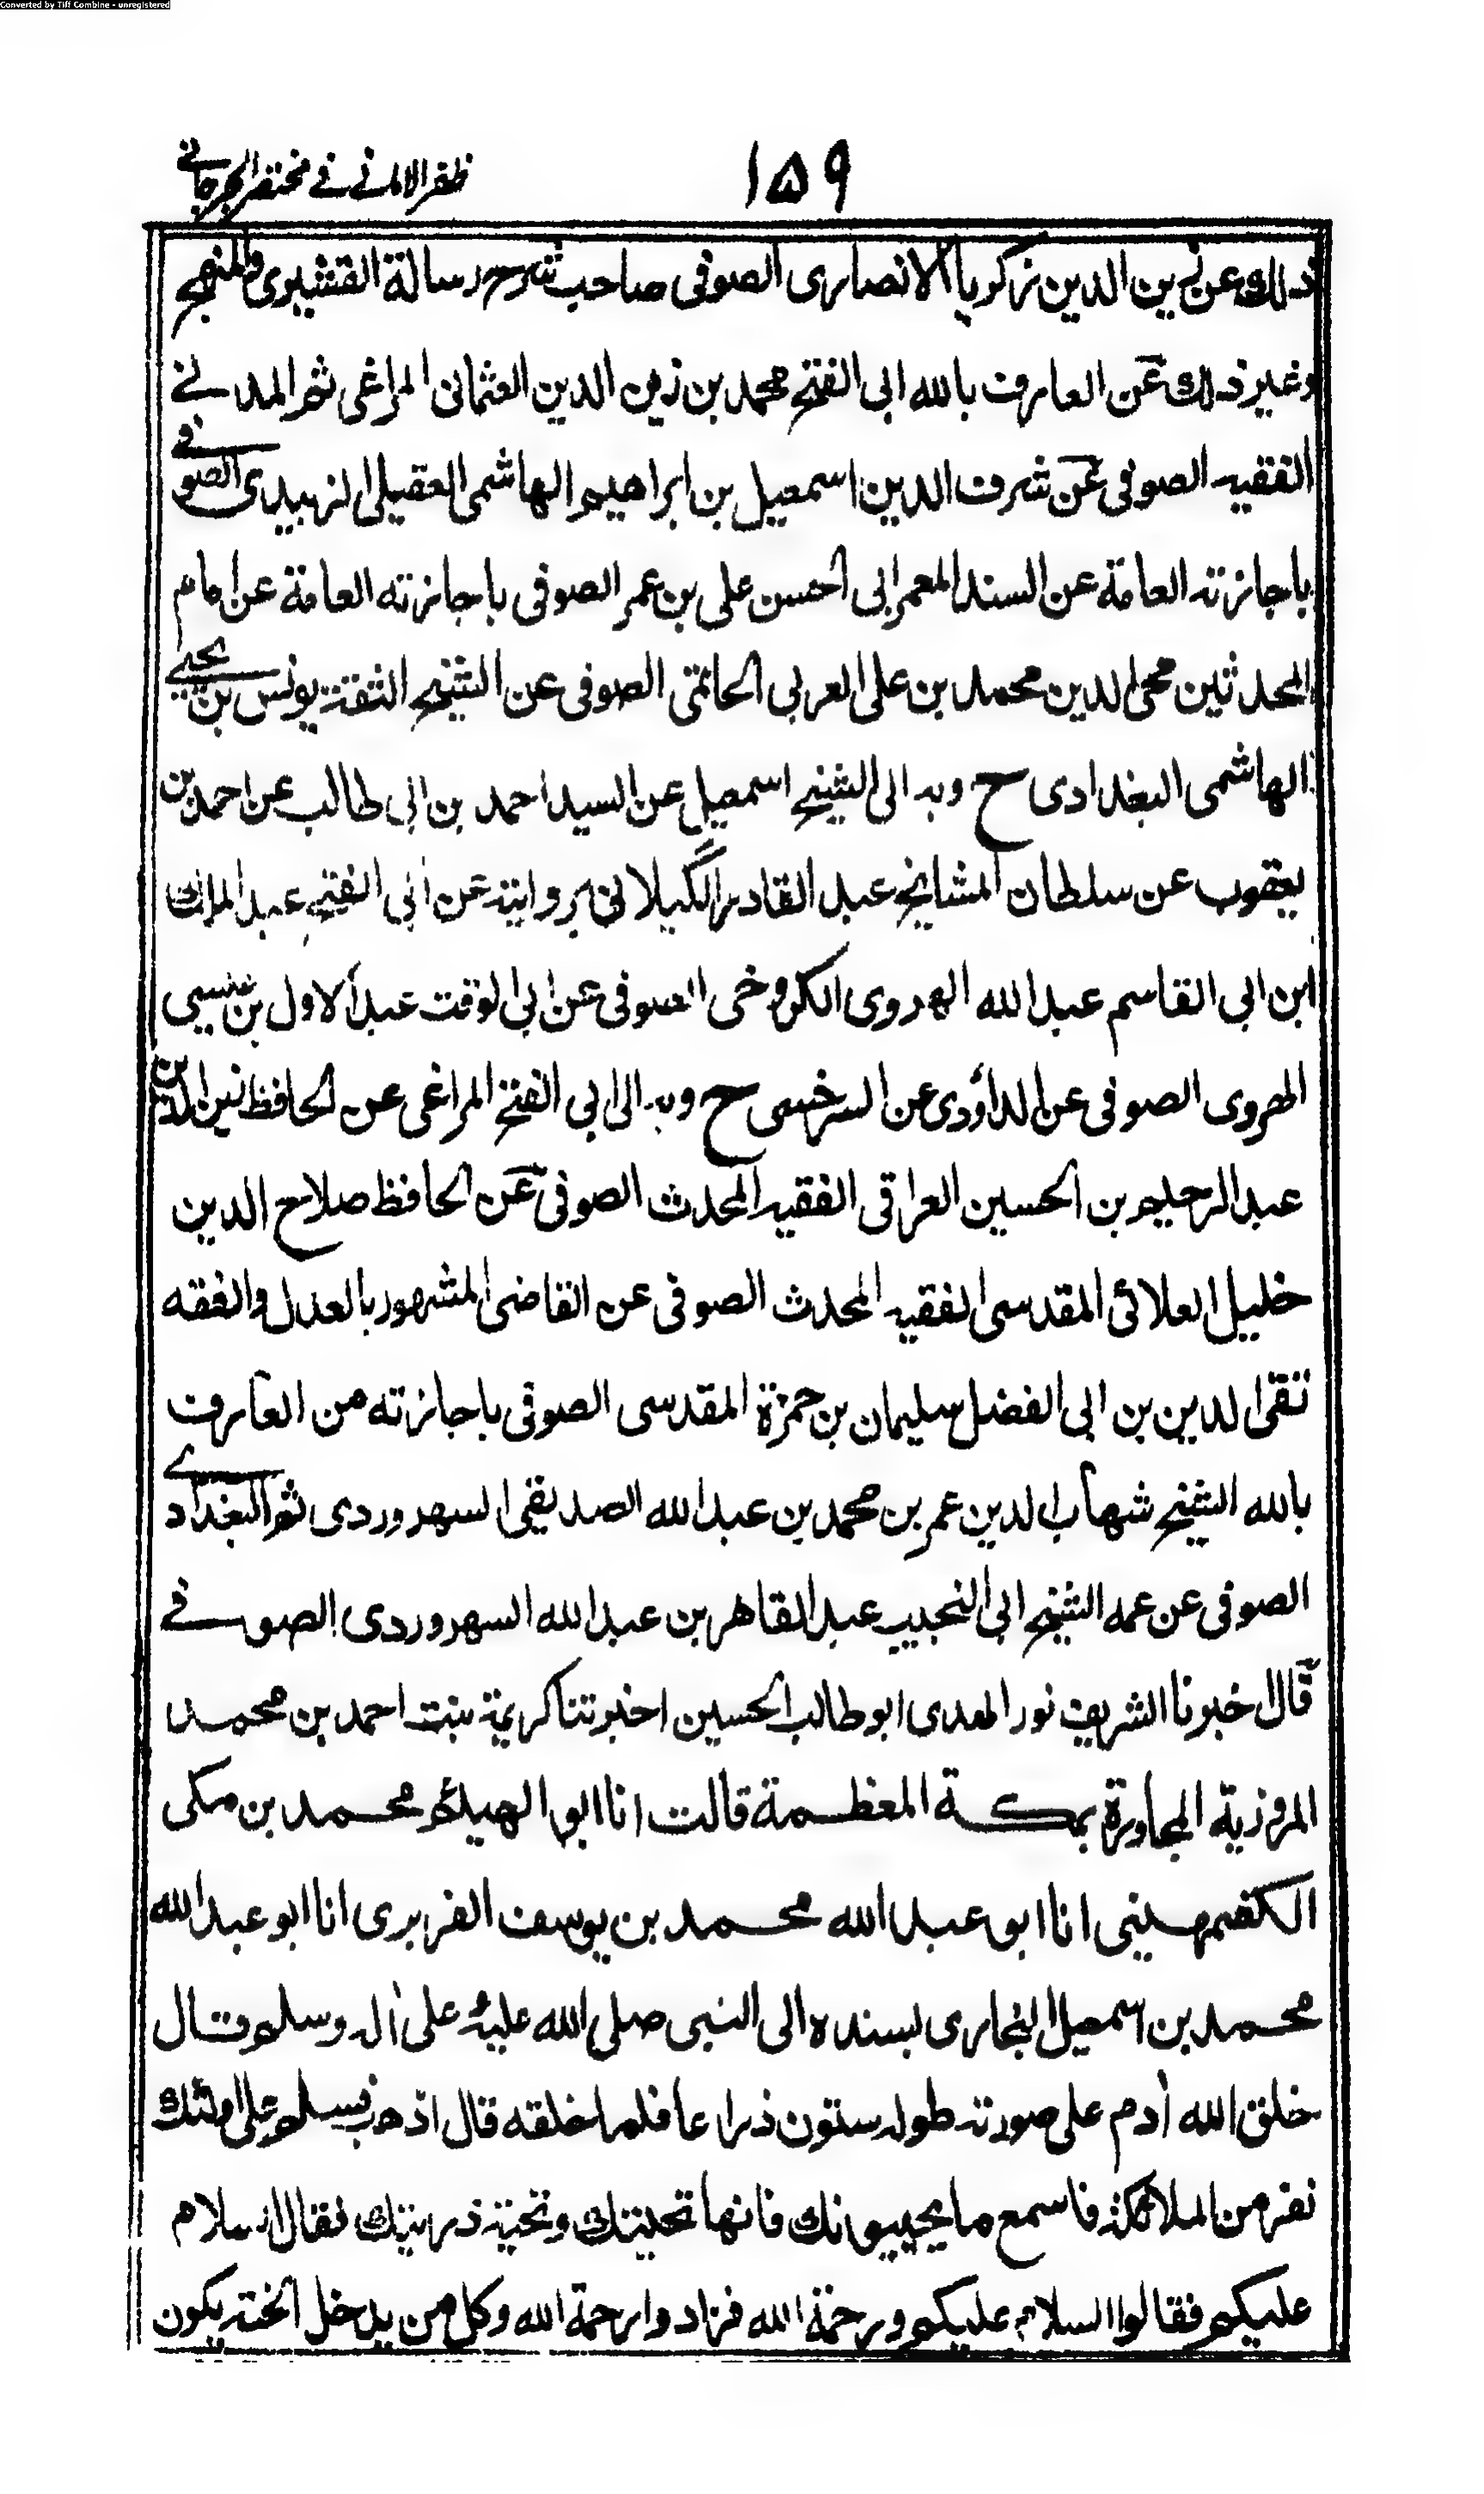 Converted by Tiff Combine - unregistered
١٥٩
ظفر الامانے فے مختصر الجرجانے
ذلك عن زين الدين زكريا الانصاری الصوفی صاحب شرح رسالة القشیری والمنهج
وغير ذلك عن العارف بالله ابی الفتح محمد بن زين الدين العثمانی المراغی ثم المدنے
الفقيه الصوفی عن شرف الدين اسمعيل بن ابراهيم الهاشمی العقيلی الزبيدی الصوفے
باجازته العامة عن السند المعمر ابی الحسن علی بن عمر الصوفی باجازته العامة عن امام
المحدثين محی الدين محمد بن علی العربی الحاتمی الصوفی عن الشيخ الثقة يونس بن يحيے
الهاشمی البغدادی ح وبه الی الشيخ اسمعيل عن السيد احمد بن ابی طالب عن احمد بن
يعقوب عن سلطان المشائخ عبد القادر الگيلانی بروايته عن ابی الفتح عبد الملك
ابن ابی القاسم عبد الله الهروی الكروخی الصوفی عن ابی الوقت عبد الاول بن عيسی
الهروی الصوفی عن الداؤدی عن السرخسی ح وبه الی ابی الفتح المراغی عن الحافظ زين الدين
عبد الرحيم بن الحسين العراقی الفقيه المحدث الصوفی عن الحافظ صلاح الدين
خليل العلائی المقدسی الفقيه المحدث الصوفی عن القاضی المشهور بالعدل والفقه
تقی الدين بن ابی الفضل سليمان بن حمزة المقدسی الصوفی باجازته من العارف
بالله الشيخ شهاب الدين عمر بن محمد بن عبد الله الصديقی السهروردی ثم البغدادے
الصوفی عن عمه الشيخ ابی النجيب عبد القاهر بن عبد الله السهروردی الصوفے
قال اخبرنا الشريف نور الهدی ابو طالب الحسين اخبرتنا كريمة بنت احمد بن محمد
المروزية المجاورة بمكة المعظمة قالت انا ابو الهيثم محمد بن مكی
الكشميهنی انا ابو عبد الله محمد بن يوسف الفربری انا ابو عبد الله
محمد بن اسمعيل البخاری بسنده الی النبی صلی الله عليه وعلی اله وسلم قال
خلق الله ادم علی صورته طوله ستون ذراعا فلما خلقه قال اذهب فسلم علی اولئك
نفر من الملائكة فاسمع ما يجيبونك فانها تحيتك وتحية ذريتك فقال السلام
عليكم فقالوا السلام عليكم ورحمة الله فزادوا رحمة الله وكل من يدخل الجنة يكون